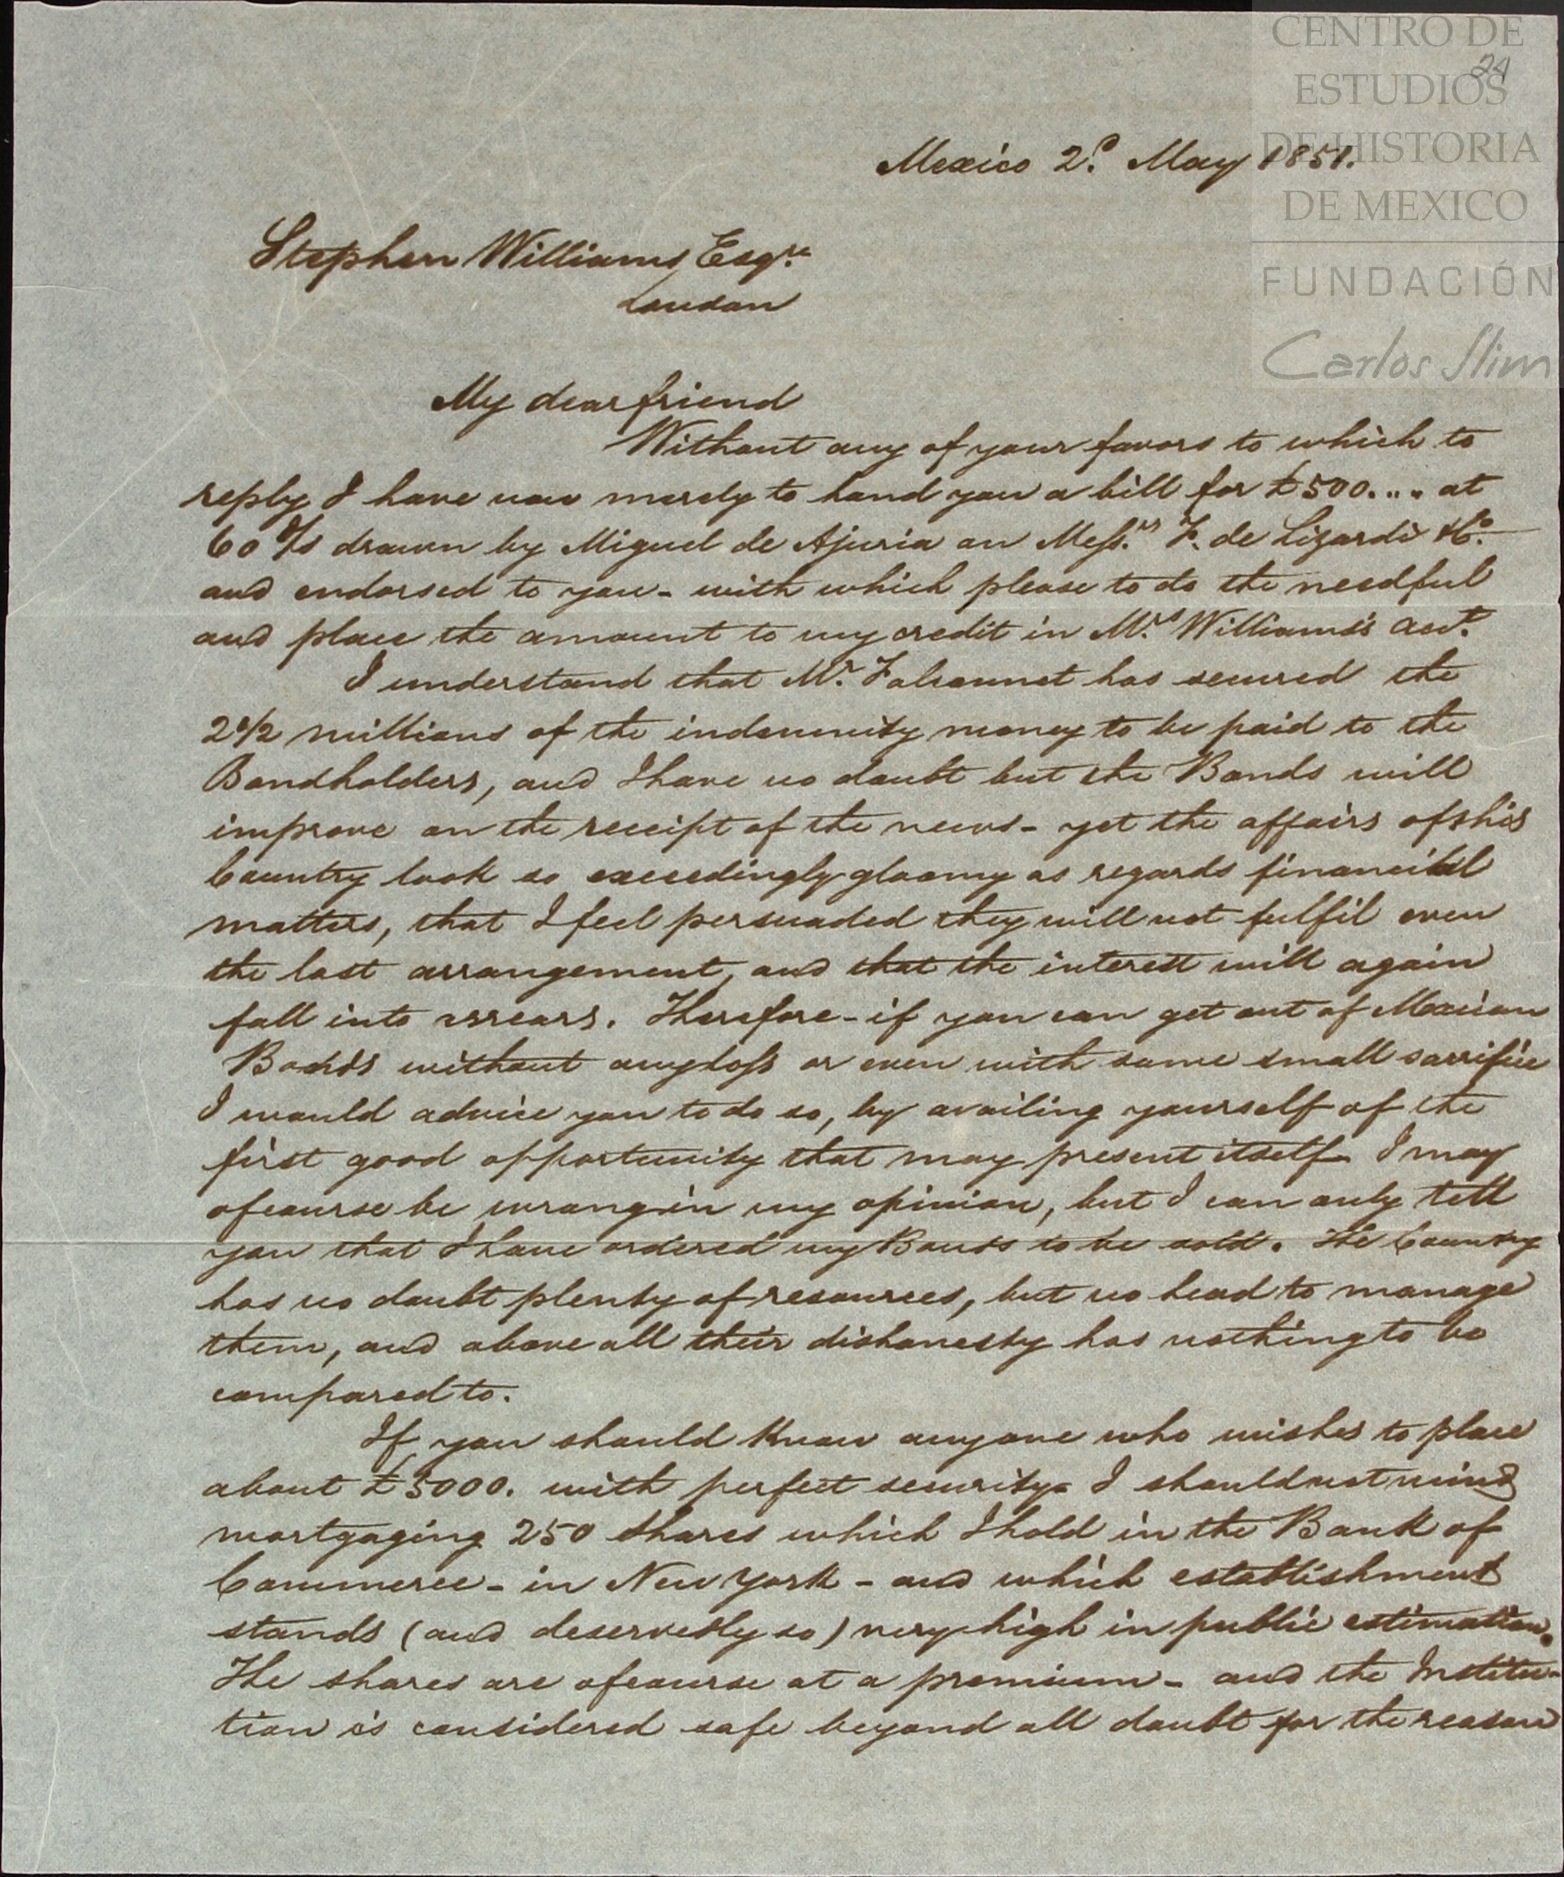 CENTRO DE
ESTUDIOS
DE HISTORIA
DE MEXICO
FUNDACIÓN
Carlos Slim
24
Mexico 2.d May 1851.
Stephen Williams Esqre
London
My dear friend
Without any of your favors to which to
reply I have now merely to hand you a bill for £500.... at
60 d/s drawn by Miguel de Ajuria on Mess.rs F. de Lizardi & Co.
and endorsed to you - with which please to do the needful
and place the amount to my credit in Mrs. Williams's acct.
I understand that Mr. Falconnet has secured the
2 1/2 millions of the indemnity money to be paid to the
Bondholders, and I have no doubt but the Bonds will
improve on the receipt of the news - yet the affairs of this
Country look so exceedingly gloomy as regards financial
matters, that I feel persuaded they will not fulfil even
the last arrangement, and that the interest will again
fall into arrears. Therefore - if you can get out of Mexican
Bonds without any loss or even with some small sacrifice
I would advice you to do so, by availing yourself of the
first good opportunity that may present itself - I may
ofcourse be wrong in my opinion, but I can only tell
you that I have ordered my Bonds to be sold. The Country
has no doubt plenty of resources, but no head to manage
them, and above all their dishonesty has nothing to be
compared to.
If you should know anyone who wishes to place
about £5000. with perfect security - I should not mind
mortgaging 250 shares which I hold in the Bank of
Commerce - in New York - and which establishment
stands (and deservedly so) very high in public estimation.
The shares are ofcourse at a premium - and the Institu-
tion is considered safe beyond all doubt for the reason